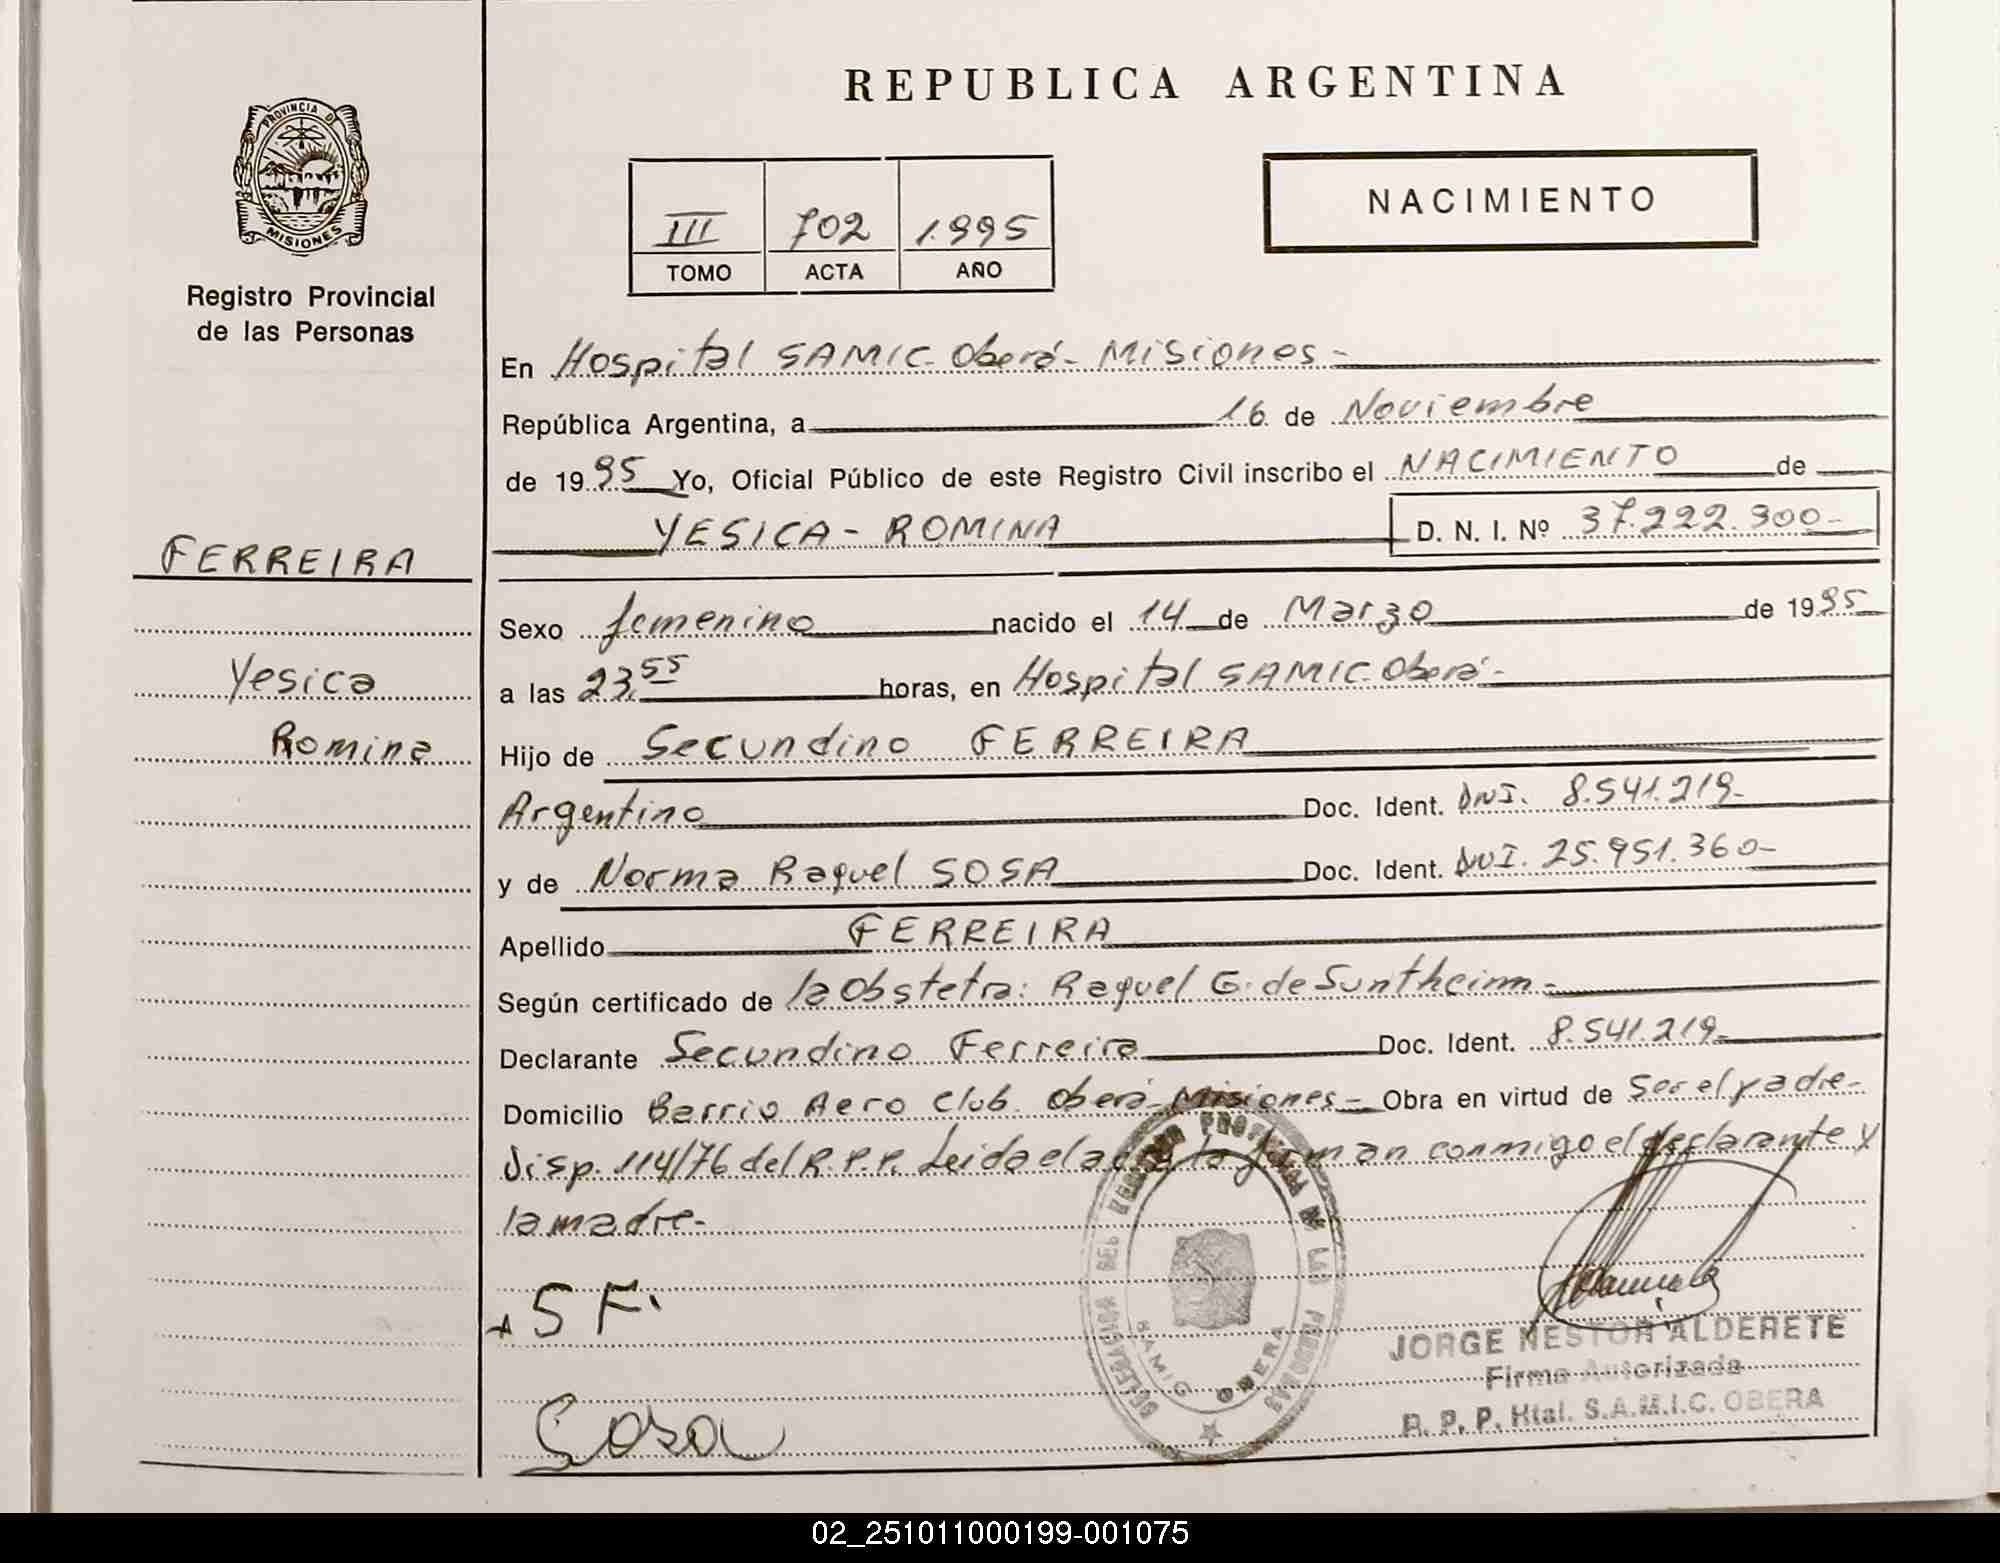 REPUBLICA ARGENTINA
PROVINCIA DE
MISIONES
Registro Provincial
de las Personas
III 702 1995
TOMO ACTA AÑO
NACIMIENTO
En Hospital SAMIC - Oberá - Misiones -
República Argentina, a 16 de Noviembre
de 1995 Yo, Oficial Público de este Registro Civil inscribo el NACIMIENTO de
YESICA - ROMINA D. N. I. Nº 37.222.300-
FERREIRA
Yesica
Romina
Sexo femenino nacido el 14 de Marzo de 1995
a las 23,55 horas, en Hospital SAMIC - Oberá -
Hijo de Secundino FERREIRA
Argentino Doc. Ident. DNI. 8.541.219-
y de Norma Raquel SOSA Doc. Ident. DNI. 25.951.360-
Apellido FERREIRA
Según certificado de la Obstetra: Raquel G. de Suntheim -
Declarante Secundino Ferreira Doc. Ident. 8.541.219-
Domicilio Barrio Aero Club. Oberá - Misiones - Obra en virtud de Ser el padre -
Disp. 114/76 del R.P.P. Leida el acta la firman conmigo el declarante y
la madre -
S F.
Sosa
SAMIC OBERA
JORGE NESTOR ALDERETE
Firma Autorizada
R. P. P. Htal. S.A.M.I.C. OBERA
02_251011000199-001075